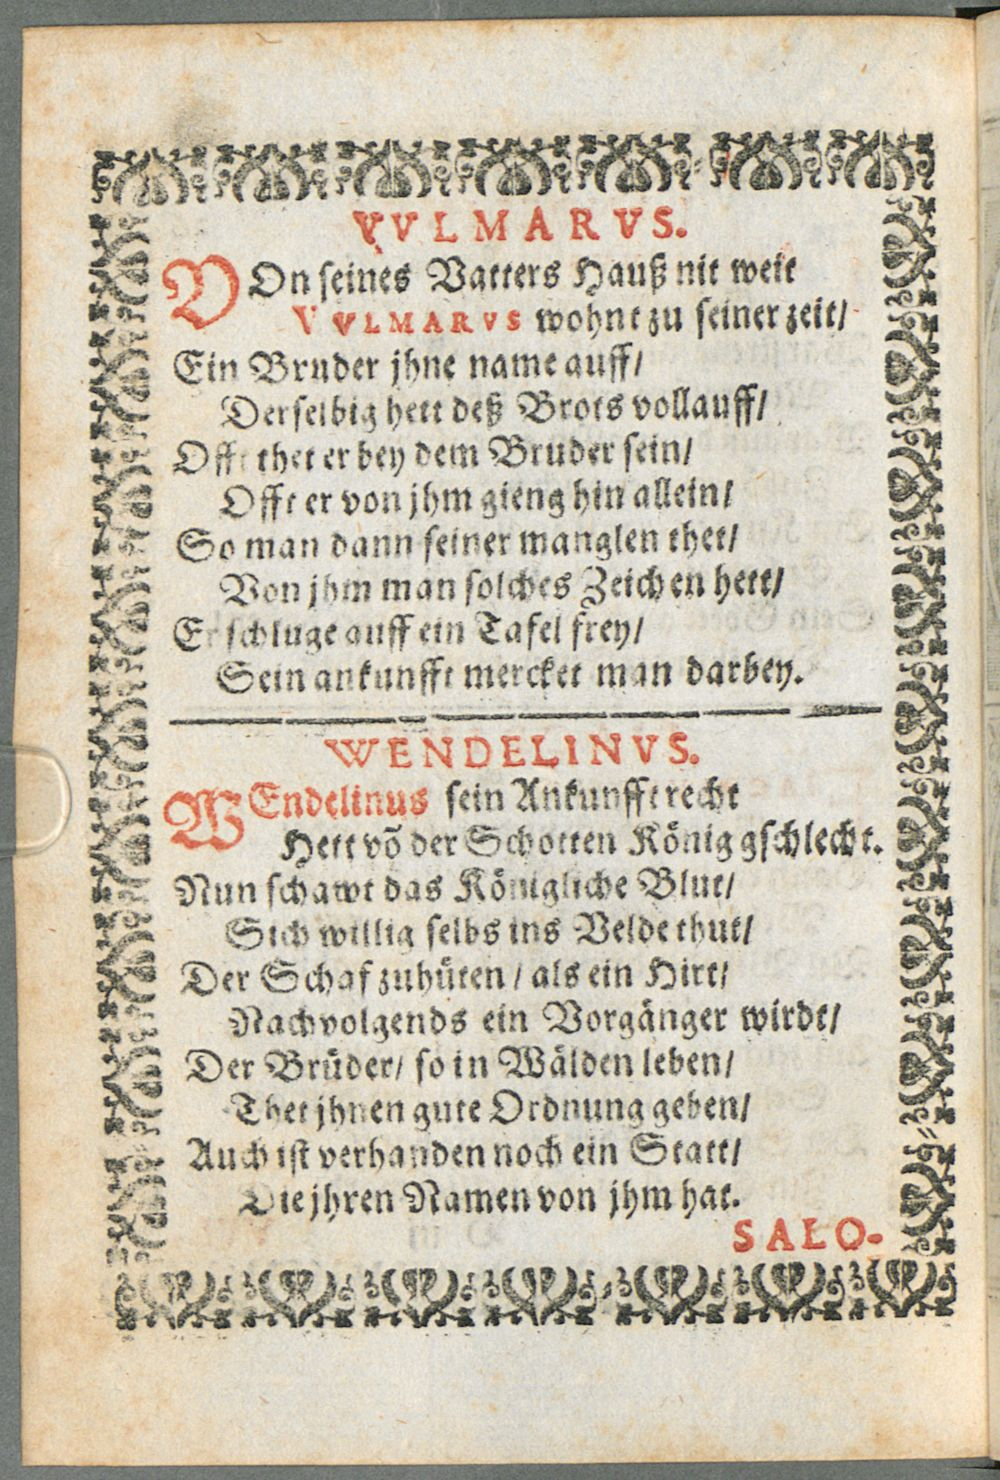 VVLMARVS.
VOn seines Vatters Hauß nit weit
VVLMARVS wohnt zu seiner zeit/
Ein Bruder jhne name auff/
Derselbig hett deß Brots vollauff/
Offt thet er bey dem Bruder sein/
Offt er von jhm gieng hin allein/
So man dann seiner manglen thet/
Von jhm man solches Zeichen hett/
Er schluge auff ein Tafel frey/
Sein ankunfft mercket man darbey.
WENDELINVS.
WEndelinus sein Ankunfft recht
Hett võ der Schotten König gschlecht.
Nun schawt das Königliche Blut/
Sich willig selbs ins Velde thut/
Der Schaf zuhüten/ als ein Hirt/
Nachvolgends ein Vorgänger wirdt/
Der Brüder/ so in Wälden leben/
Thet jhnen gute Ordnung geben/
Auch ist verhanden noch ein Statt/
Die jhren Namen von jhm hat.
SALO-